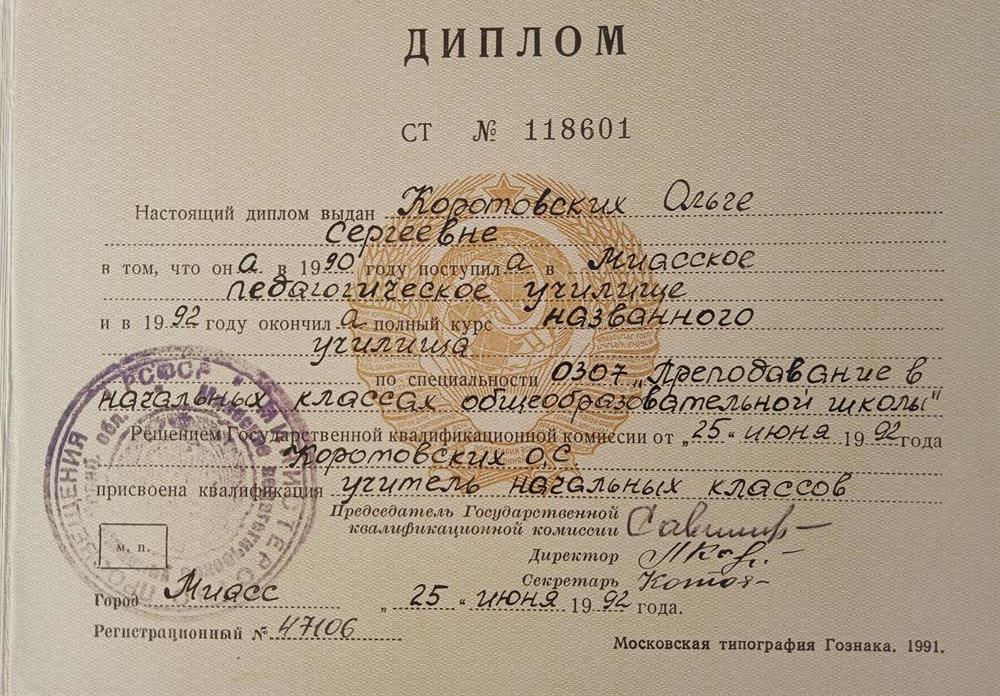 ДИПЛОМ
СТ № 118601
Настоящий диплом выдан Коротовских Ольге
Сергеевне
в том, что она в 1990 году поступила в Миасское
педагогическое училище
и в 1992 году окончила полный курс названного
училища
по специальности 0307 „Преподавание в
начальных классах общеобразовательной школы"
Решением Государственной квалификационной комиссии от „25" июня 1992 года
Коротовских О.С
присвоена квалификация учитель начальных классов
Председатель Государственной
квалификационной комиссии
Директор
Секретарь
м. п.
Город Миасс „25" июня 1992 года.
Регистрационный № 47106
Московская типография Гознака. 1991.
РСФСР